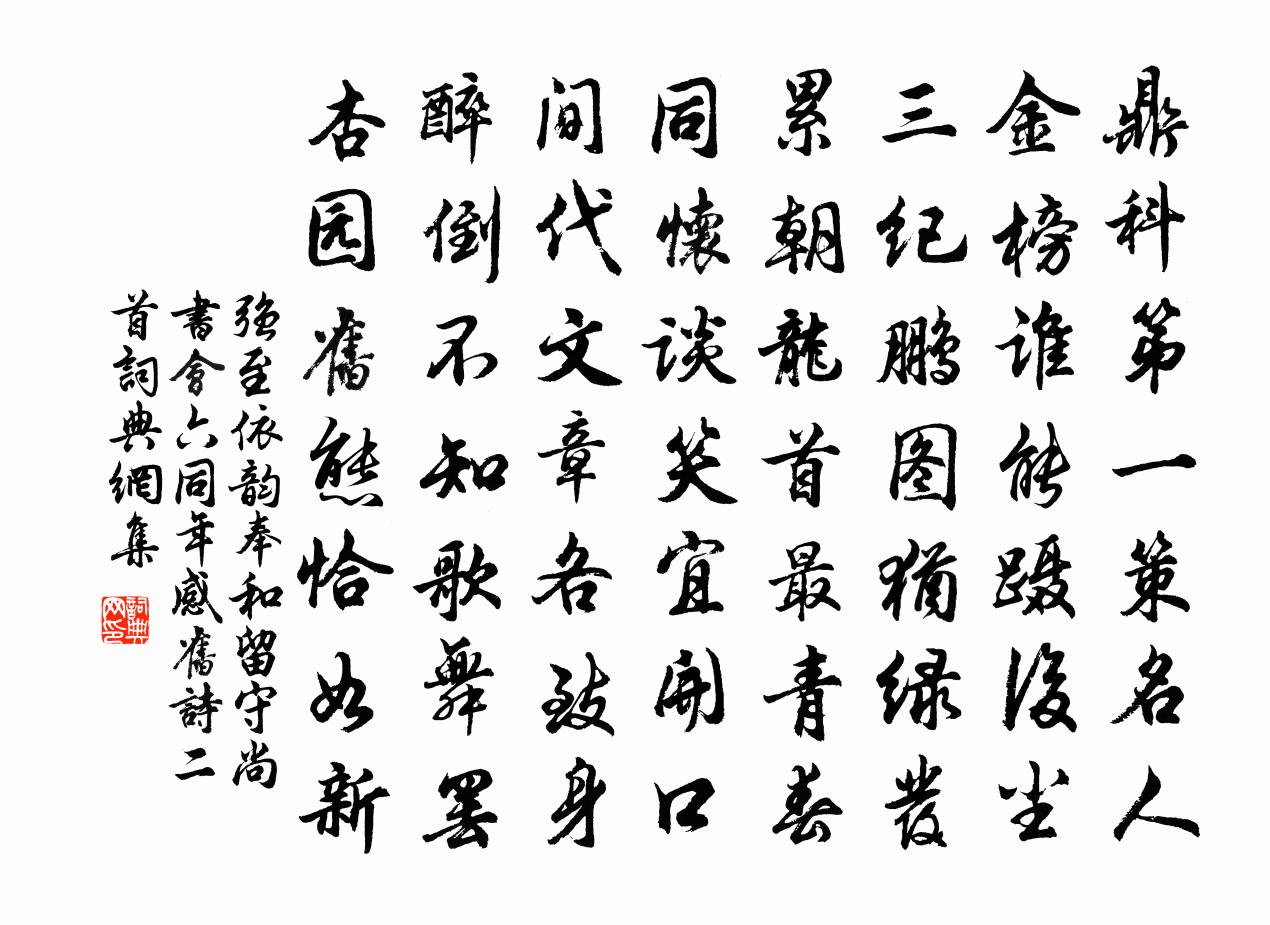 鼎科第一策名人
金榜谁能蹑後尘
三纪鹏图猶绿發
累朝龍首最青春
同懷谈笑宜開口
间代文章各致身
醉倒不知歌舞罢
杏园舊態恰如新
强至依韵奉和留守尚
書會六同年感舊詩二
首詞典網集
詞典
网印